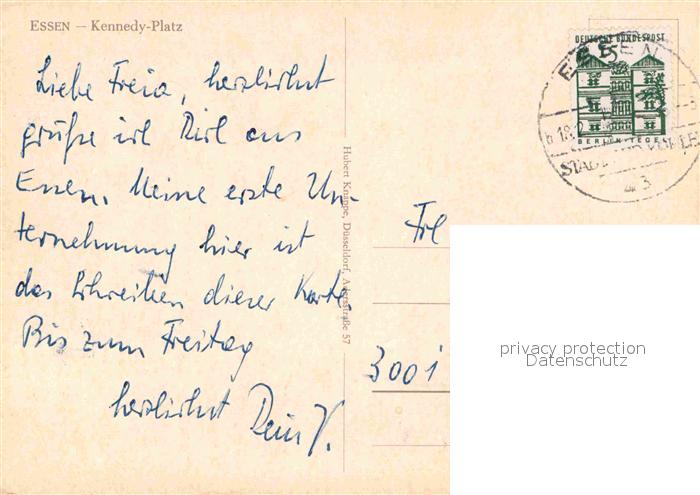 ESSEN — Kennedy-Platz
Liebe Freia, herzlichst
grüße ich Dich aus
Essen. Meine erste Un-
ternehmung hier ist
das Schreiben dieser Karte.
Bis zum Freitag
herzlichst Dein V.
Hubert Knappe, Düsseldorf, 57
DEUTSCHE BUNDESPOST
BERLIN-TEGEL
ESSEN
3
Frl
3001
privacy protection
Datenschutz